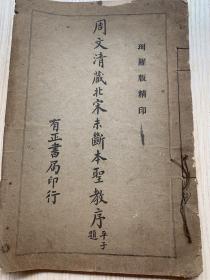 珂羅版精印
周文清藏北宋未斷本聖教序
平子題
有正書局印行